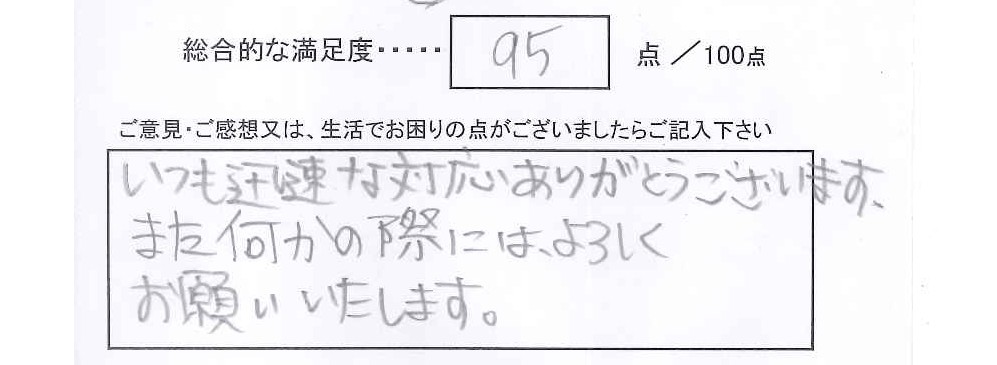 総合的な満足度・・・・・ 95 点 ／100点
ご意見・ご感想又は、生活でお困りの点がございましたらご記入下さい
いつも迅速な対応ありがとうございます、
また何かの際には、よろしく
お願いいたします。